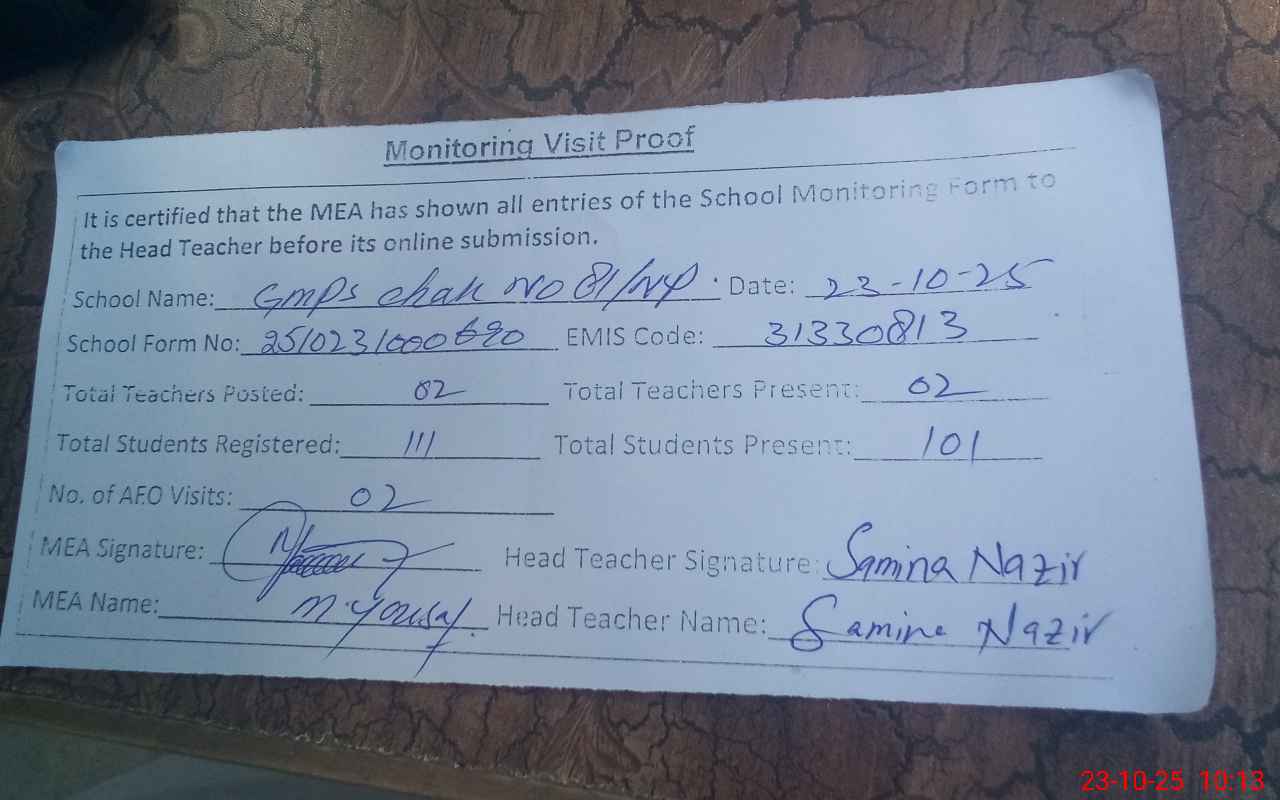 Monitoring Visit Proof
It is certified that the MEA has shown all entries of the School Monitoring Form to
the Head Teacher before its online submission.
School Name: GMPS chak No 81/NP. Date: 23-10-25
School Form No: 2510231000690 EMIS Code: 31330813
Total Teachers Posted: 02 Total Teachers Present: 02
Total Students Registered: 111 Total Students Present: 101
No. of AEO Visits: 02
MEA Signature: Head Teacher Signature: Samina Nazir
MEA Name: M. Yousaf. Head Teacher Name: Samina Nazir
23-10-25 10:13